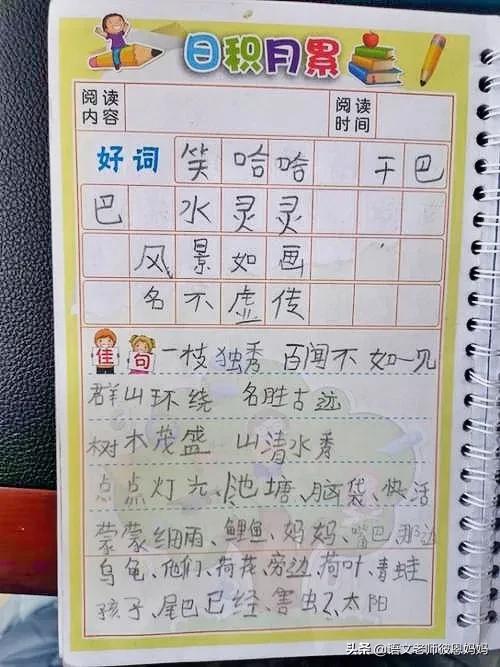 日积月累
阅读内容 阅读时间
好词 笑哈哈 干巴
巴 水灵灵
风景如画
名不虚传
佳句 一枝独秀 百闻不如一见
群山环绕 名胜古远
树木茂盛 山清水秀
点点灯光、池塘、脑袋、快活
蒙蒙细雨、鲤鱼、妈妈、嘴巴、那边
乌龟、他们、荷花、旁边、荷叶、青蛙
孩子、尾巴、已经、害虫、太阳
头条 @语文老师彼恩妈妈